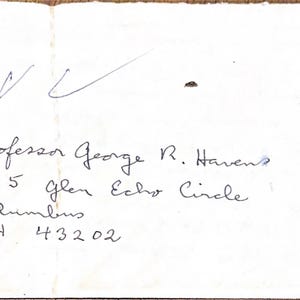 ofessor George R. Havens
5 Glen Echo Circle
lumbus
H 43202